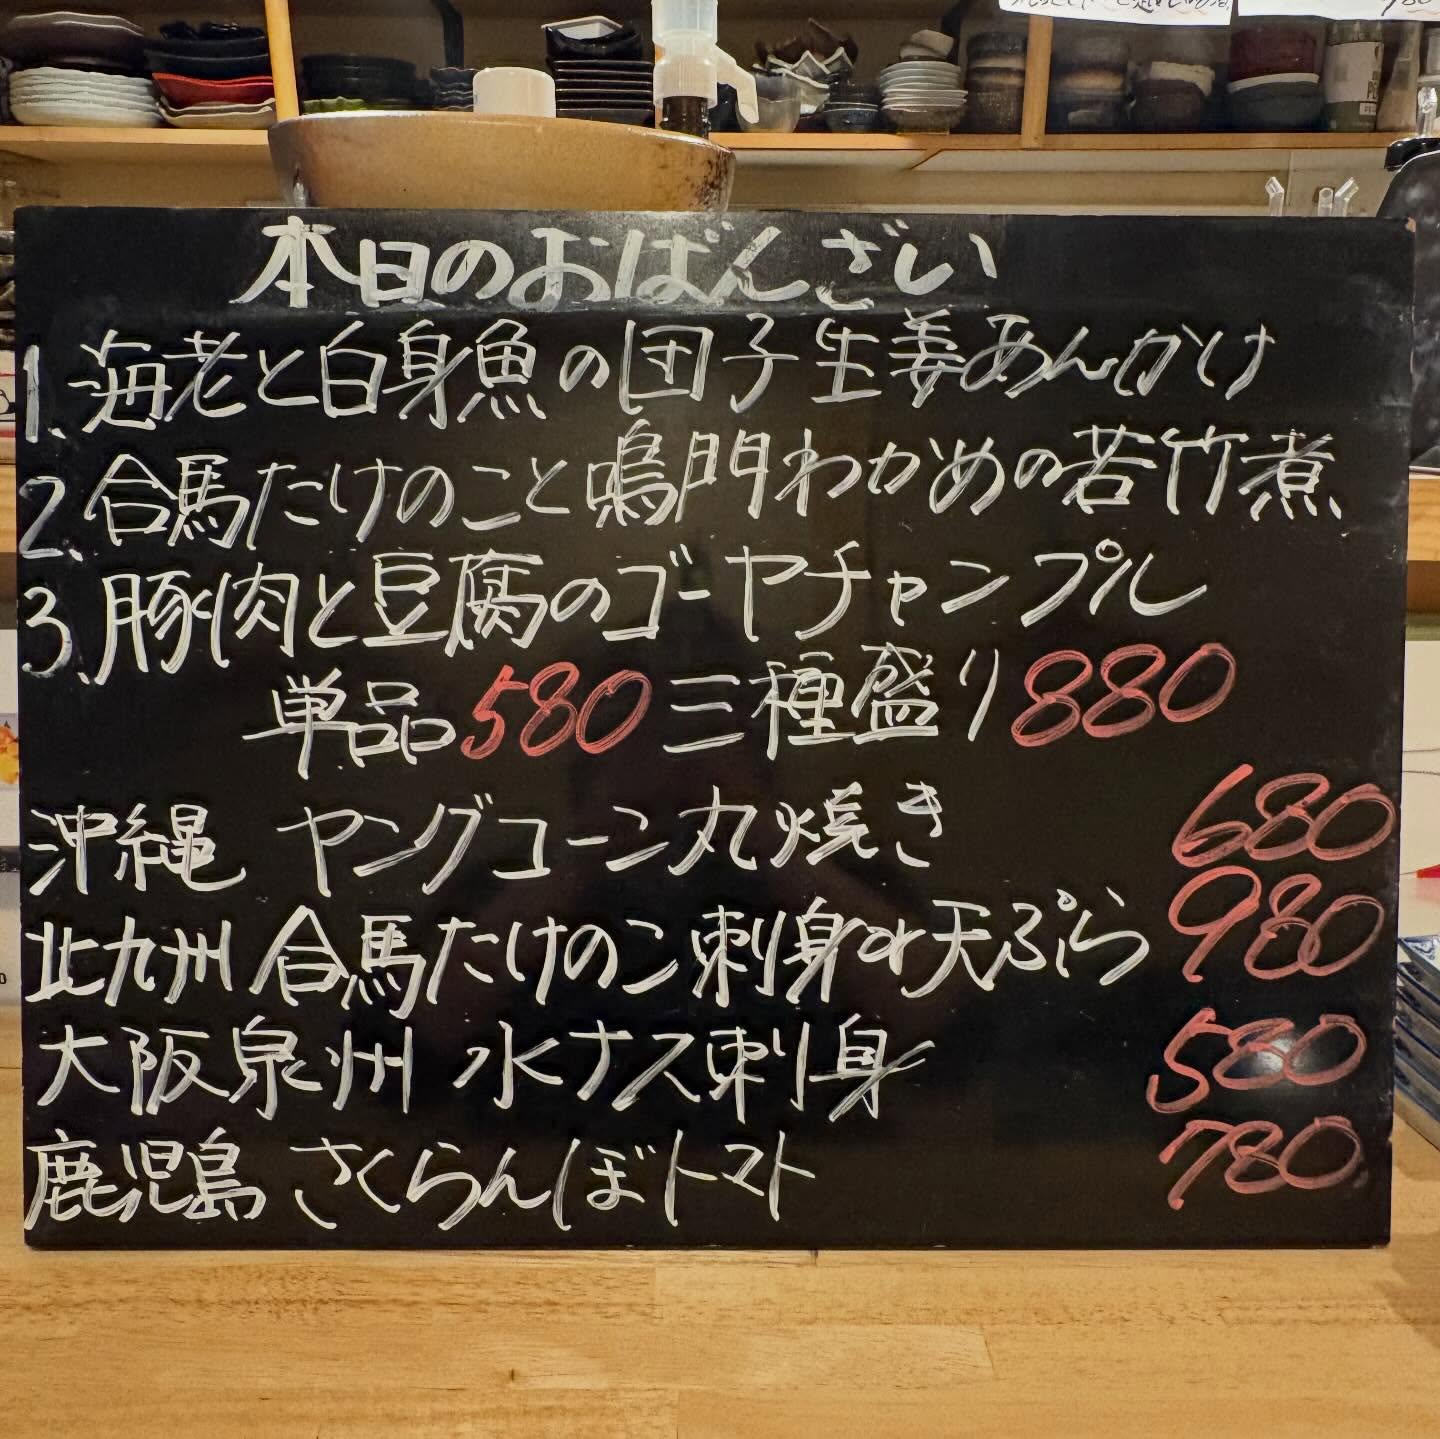 本日のおばんざい
1.海老と白身魚の団子生姜あんかけ
2.合馬たけのこと鳴門わかめの若竹煮
3.豚肉と豆腐のゴーヤチャンプル
単品580 三種盛り880
沖縄 ヤングコーン丸焼き 680
北九州 合馬たけのこ刺身or天ぷら 980
大阪泉州 水ナス刺身 580
鹿児島 さくらんぼトマト 780